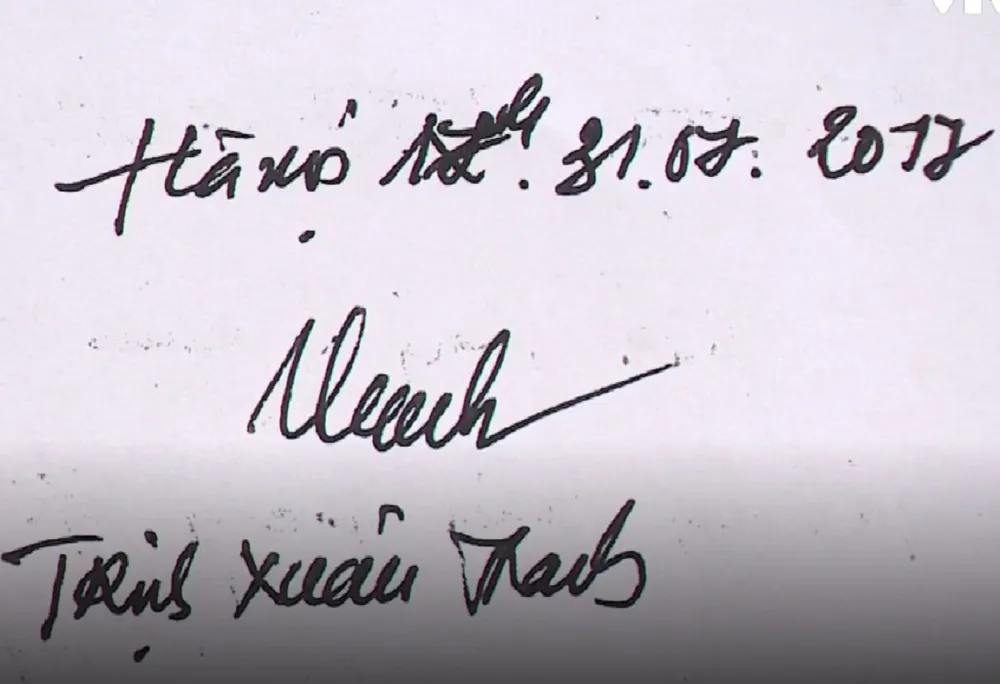 Hà nội 17h. 31.07. 2017
Trịnh Xuân Thanh